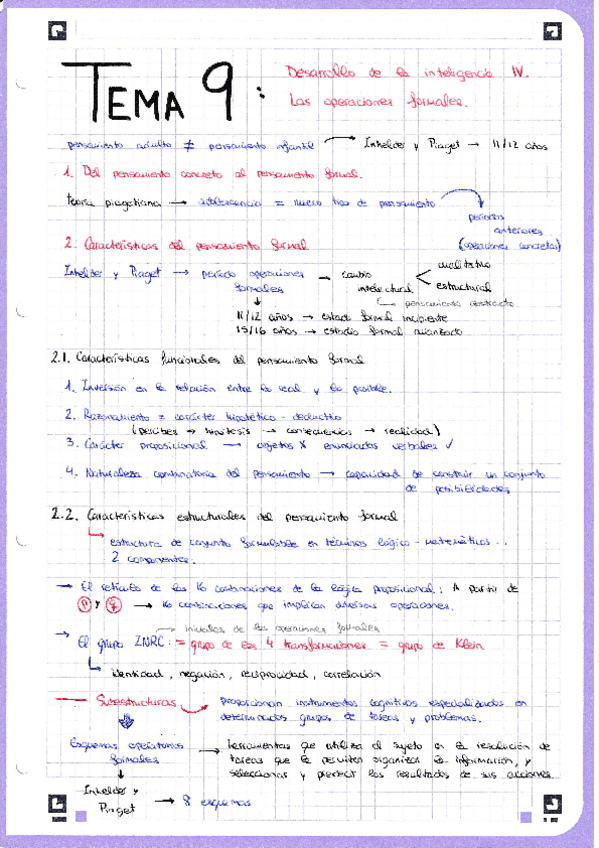 TEMA 9:
Desarrollo de la inteligencia IV.
Las operaciones formales.
pensamiento adulto ≠ pensamiento infantil → Inhelder y Piaget → 11/12 años
1. Del pensamiento concreto al pensamiento formal.
teoría piagetiana → adolescencia = nuevo tipo de pensamiento
periodos
anteriores
(operaciones concretas)
2. Características del pensamiento formal
Inhelder y Piaget → periodo operaciones formales → cambio intelectual < cualitativo
estructural
pensamiento abstracto
11/12 años → estadio formal incipiente
15/16 años → estadio formal avanzado
2.1. Características funcionales del pensamiento formal
1. Inversión en la relación entre lo real y lo posible.
2. Razonamiento = carácter hipotético-deductivo
(percibes → hipótesis → consecuencias → realidad)
3. Carácter proposicional → objetos X enunciados verbales ✓
4. Naturaleza combinatoria del pensamiento → capacidad de construir un conjunto
de posibilidades
2.2. Características estructurales del pensamiento formal
estructura de conjunto formulable en términos lógico-matemáticos..
2 componentes.
→ El retículo de las 16 combinaciones de la lógica proposicional: A partir de
P y q → 16 combinaciones que implican diversas operaciones.
iniciales de las operaciones formales
→ El grupo INRC: = grupo de las 4 transformaciones = grupo de Klein
identidad, negación, reciprocidad, correlación
Subestructuras
proporcionan instrumentos cognitivos especializados en
determinados grupos de tareas y problemas.
Esquemas operatorios
formales
→ herramientas que utiliza el sujeto en la resolución de
tareas que le permiten organizar la información, y
seleccionar y predecir los resultados de sus acciones
Inhelder y
Piaget → 8 esquemas